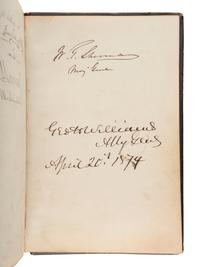 W. T. Sherman
Maj Genl
Geo H Williams
Atty Genl
April 20th 1874